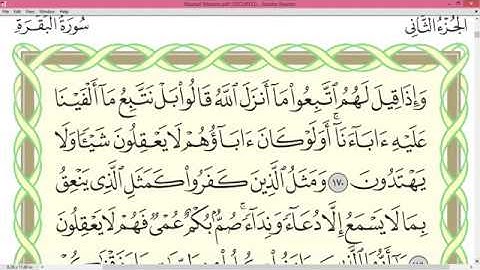 سُورَةُ البَقَرَةِ الجُزْءُ الثَّانِي
وَإِذَا قِيلَ لَهُمُ ٱتَّبِعُوا۟ مَآ أَنزَلَ ٱللَّهُ قَالُوا۟ بَلْ نَتَّبِعُ مَآ أَلْفَيْنَا
عَلَيْهِ ءَابَآءَنَآ ۗ أَوَلَوْ كَانَ ءَابَآؤُهُمْ لَا يَعْقِلُونَ شَيْـًٔا وَلَا
يَهْتَدُونَ ١٧٠ وَمَثَلُ ٱلَّذِينَ كَفَرُوا۟ كَمَثَلِ ٱلَّذِى يَنْعِقُ
بِمَا لَا يَسْمَعُ إِلَّا دُعَآءً وَنِدَآءً ۚ صُمٌّۢ بُكْمٌ عُمْىٌ فَهُمْ لَا يَعْقِلُونَ